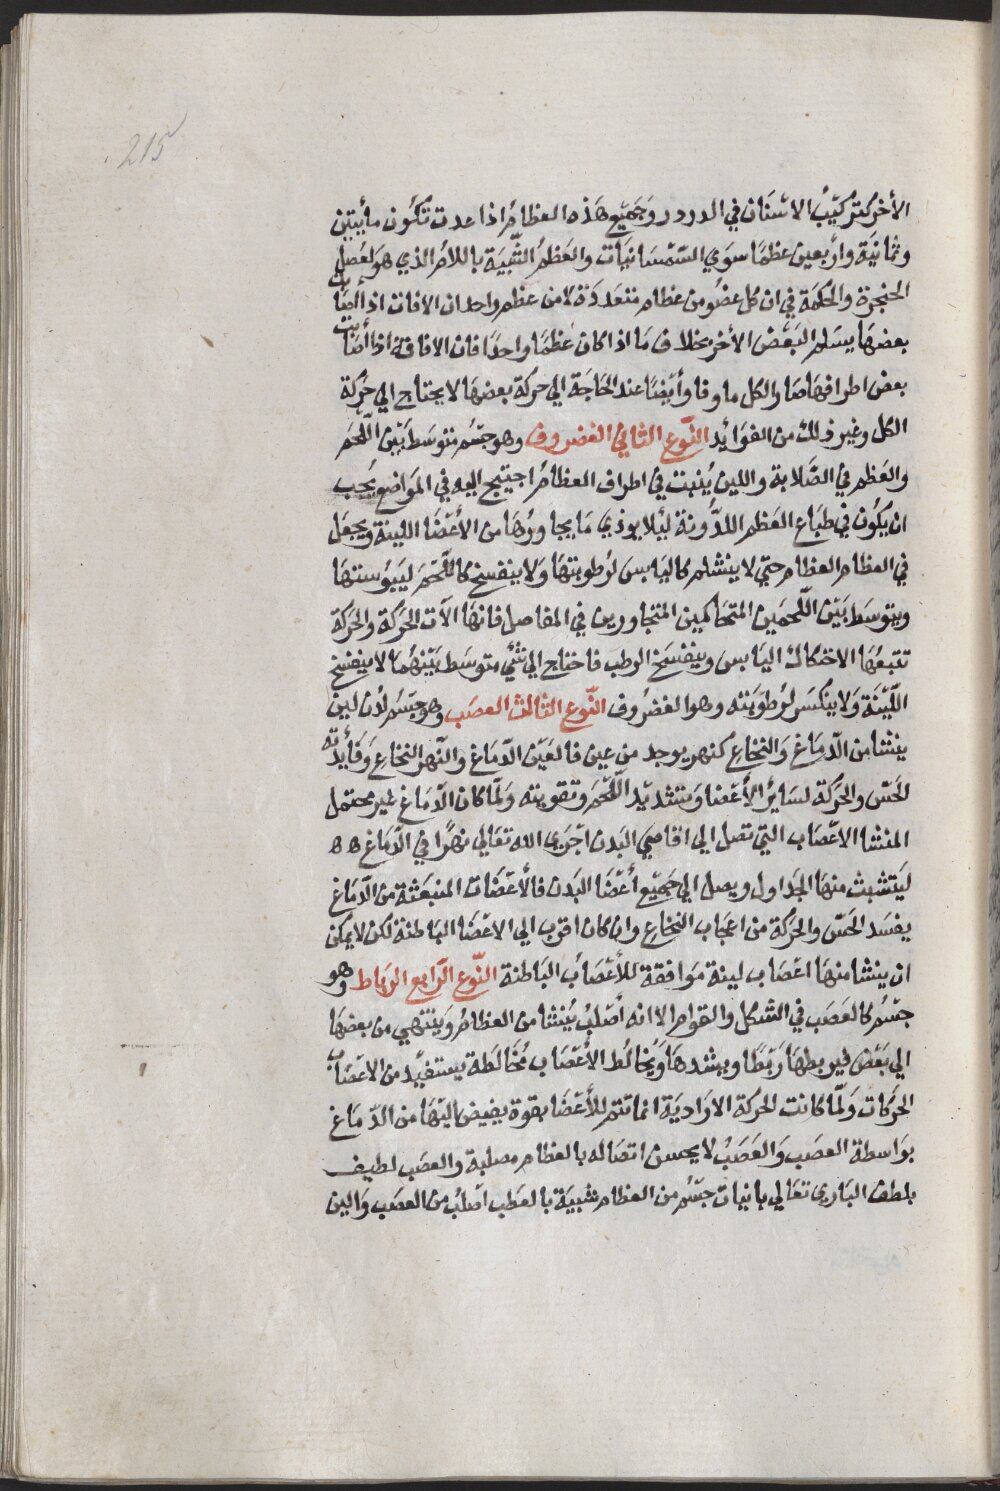 215
الأخر كتركيب الاسنان في الدردر وجميع هذه العظام اذا عدت تكون مأيتين
وثمانية واربعين عظما سوي السمسانيات والعظم الشبية باللام الذي هو لعضل
الحنجرة والحكمة في ان كل عضو من عظام متعددة لا من عظم واحد ان الافات اذا أصابت
بعضها يسلم البعض الأخر بخلاف ما اذا كان عظما واحدا فان الافافة اذا أصابت
بعض اطرافها صار الكل ماوفا وأيضا عند الحاجة الي حركة بعضها لا يحتاج الي حركة
الكل وغير ذلك من الفوايد النوع الثاني الغضروف وهو جسم متوسط بين اللحم
والعظم في الصلابة واللين ينبت في اطراف العظام احتيج اليه في المواضع يجب
ان يكون في طباع العظم اللدونة ليلا يوذي ما يجاورها من الأعضا اللينة ويجعل
في العظام العظام حتي لا ينشلم كاليابس لرطوبتها ولا ينفسخ كاللحم ليبوستها
ويتوسط بين اللحمين المتحاكمين المتجاورين في المفاصل فانها الآت الحركة والحركة
تتبعها الاحتكاك اليابس وينفسخ الرطب فاحتاج الي شئي متوسط بينهما لا ينفسخ
اللينة ولا ينكسر لرطوبته وهو الغضروف النوع الثالث العصب وهو جسم لدن لين
ينشا من الدماغ والنخاع كنهر يوجد من عين فالعين الدماغ والنهر النخاع وفأيدته
الحس والحركة لساير الأعضا وتشديد اللحم وتقويته ولما كان الدماغ غير محتمل
المنشا الاعصاب التي تصل الي اقاصي البدن اجري الله تعالي نهرا في الدماغ ٥٥
ليتشبث منها الجداول ويصل الي جميع أعضا البدن فالأعضات المنبعثة من الدماغ
يفسد الحس والحركة من اعجاب النخاع وان كان اقرب الي الاعضا الباطنة لكن لا يمكن
ان ينشا منها اعصاب لينة موافقة للأعصاب الباطنة النوع الرابع الرباط وهو
جسم كالعصب في الشكل والقوام الا انه أصلب ينشا من العظام وينتهي من بعضها
الي بعض فيربطها ربطا ويشدها ويخالط الأعصاب مخالطة يستفيد من الاعصاب
الحركات ولما كانت الحركة الارادية انما تتم للأعضا بقوة يفيض اليها من الدماغ
بواسطة العصب والعصب لا يحسن اتصاله بالعظام مصلبة والعصب لطيف
بلطف الباري تعالي بانيات جسم من العظام شبية بالعطب اصلب من العصب والين